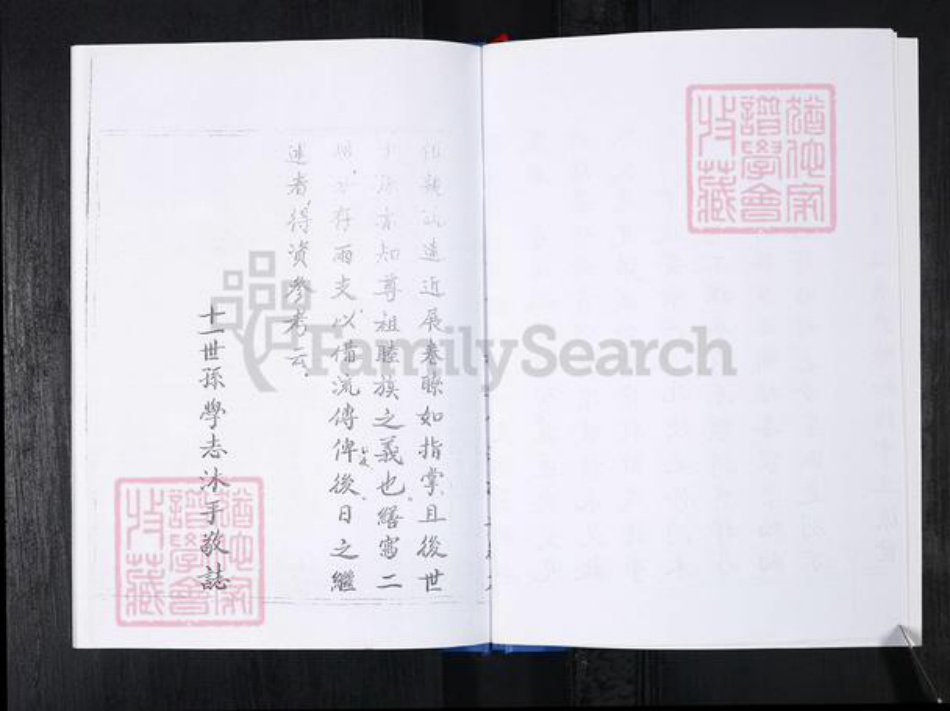 遠近展卷瞭如指掌且後世
亦知尊祖睦族之義也繕寫二
存兩支以備流傳俾後日之繼
述者得資參考云
十一世孫學志沐手敬誌
猶他家譜學會收藏
猶他家譜學會收藏
FamilySearch